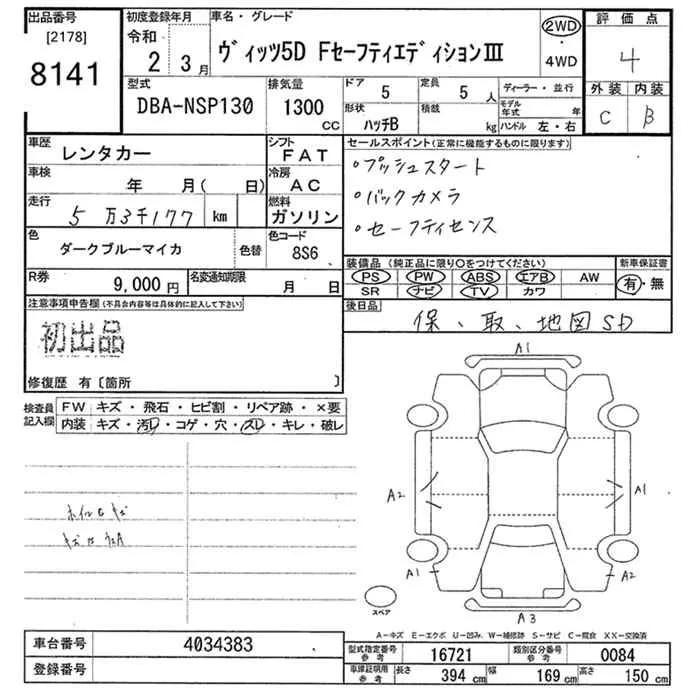 出品番号
[2178]
8141
初度登録年月
令和
2 3月
車名・グレード
ヴィッツ5D FセーフティエディションⅢ
2WD
・
4WD
評価点
4
型式
DBA-NSP130
排気量
1300
CC
ドア
5
定員
5 人
形状
ハッチB
積載
kg
ディーラー・並行
モデル年式 年
ハンドル 左・右
外装 内装
C B
車歴
レンタカー
シフト
FAT
車検
年 月( 日)
冷房
AC
走行
5万3千177 km
燃料
ガソリン
色
ダークブルーマイカ
色替
色コード
8S6
R券
9,000 円
名変通知期限
月 日
セールスポイント(正常に機能するものに限ります)
・プッシュスタート
・バックカメラ
・セーフティセンス
装備品(純正品に限り○をつけてください)
PS PW ABS エアB AW
SR ナビ TV カワ
新車保証書
有・無
後日品
保、取、地図SD
注意事項申告欄(不具合内容等は具体的に記入して下さい)
初出品
修復歴 有〔箇所 〕
検査員記入欄
FW キズ・飛石・ヒビ割・リペア跡・×要
内装 キズ・汚レ・コゲ・穴・スレ・キレ・破レ
ホイルCキズ
A1
A2
A1
A1
A2
A3
スペア
A-キズ E-エクボ U-凹み W-補修跡 S-サビ C-腐食 XX-交換済
車台番号
4034383
登録番号
型式指定番号参考
16721
類別区分番号参考
0084
車庫証明用参考
長さ 394 cm 幅 169 cm 高さ 150 cm